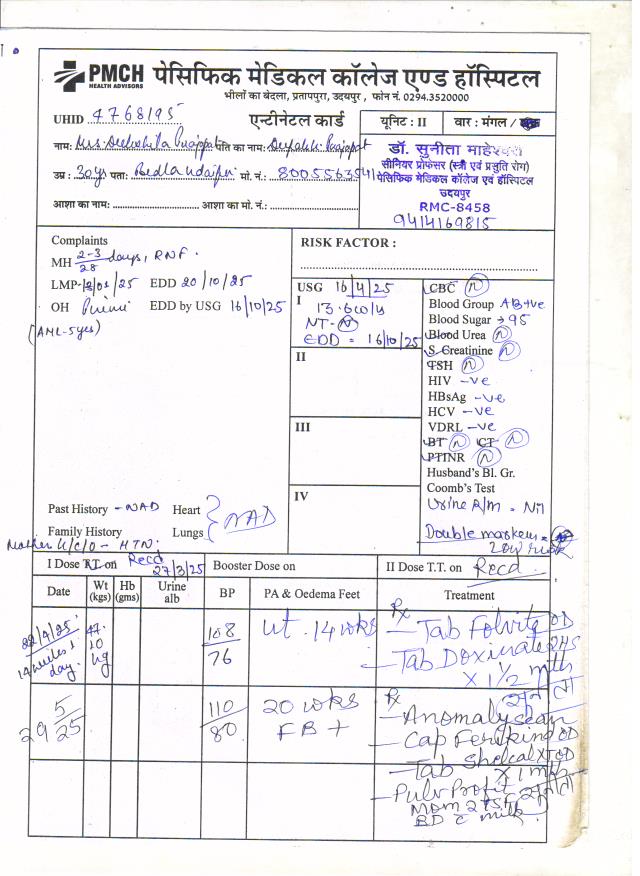 PMCH
HEALTH ADVISORS
पेसिफिक मेडिकल कॉलेज एण्ड हॉस्पिटल
भीलों का बेदला, प्रतापपुरा, उदयपुर , फोन नं. 0294.3520000
UHID 4768195 एन्टीनेटल कार्ड यूनिट : II वार : मंगल /
नाम: Mrs. Prajapat पति का नाम: Prajapat
उम्र : 30 yrs पता: Bedla Udaipur मो. नं.: 8005563541
आशा का नाम: आशा का मो. नं.:
डॉ. सुनीता माहेश्वरी
सीनियर प्रोफेसर (स्त्री एवं प्रसुति रोग)
पेसिफिक मेडिकल कॉलेज एवं हॉस्पिटल
उदयपुर
RMC-8458
9414169815
Complaints
MH 2-3/28 days, RNF.
LMP- 13/01/25 EDD 20/10/25
OH Primi EDD by USG 16/10/25
(AML-5yrs)
Past History - NAD Heart
Family History Lungs NAD
Mother K/C/O - HTN.
RISK FACTOR :
USG 16/4/25
I 13.6 w
NT- N
EDD = 16/10/25
II
III
IV
CBC N
Blood Group AB+ve
Blood Sugar → 95
Blood Urea N
S. Creatinine N
TSH N
HIV -ve
HBsAg -ve
HCV -ve
VDRL -ve
BT N CT N
PTINR N
Husband's Bl. Gr.
Coomb's Test
Urine R/m = Nil
Double marker =
Low risk
I Dose T.T. on Recd 27/3/25 Booster Dose on II Dose T.T. on Recd.
Date Wt (kgs) Hb (gms) Urine alb BP PA & Oedema Feet Treatment
22/4/25 47.10 kg 108/76 ut. 14 wks Rx
14 weeks 1 day
- Tab Folvite OD
- Tab Doxinate 2HS
X 1 1/2 mth
29/5/25 110/80 20 wks Rx
FB +
- Anomaly scan
- Cap Ferikind OD
- Tab Shelcal XT OD
X 1 mth
- Pulv Profit
Mom 2 tsf
BD c milk.